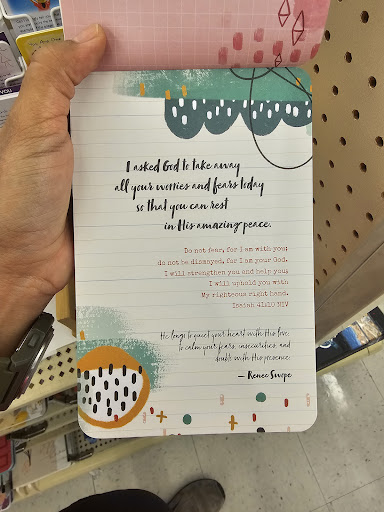 I asked God to take away
all your worries and fears today
so that you can rest
in His amazing peace.
Do not fear, for I am with you;
do not be dismayed, for I am your God.
I will strengthen you and help you;
I will uphold you with
My righteous right hand.
Isaiah 41:10 NIV
He longs to quiet your heart with His love,
to calm your fears, insecurities, and
doubts with His presence.
— Renee Swope